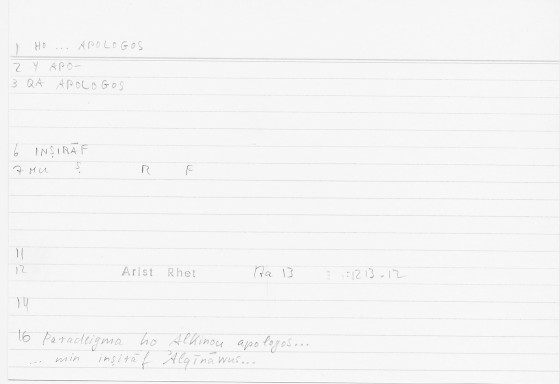 1 HO ... APOLOGOS
2 Y APO-
3 QA APOLOGOS
6 INṢIRĀF
7 MU ṣ R F
11
12 Arist Rhet 17a 13 : 1213.12
14
16 Paradeigma ho Alkinou apologos...
... min inṣirāf Alqīnāwus...